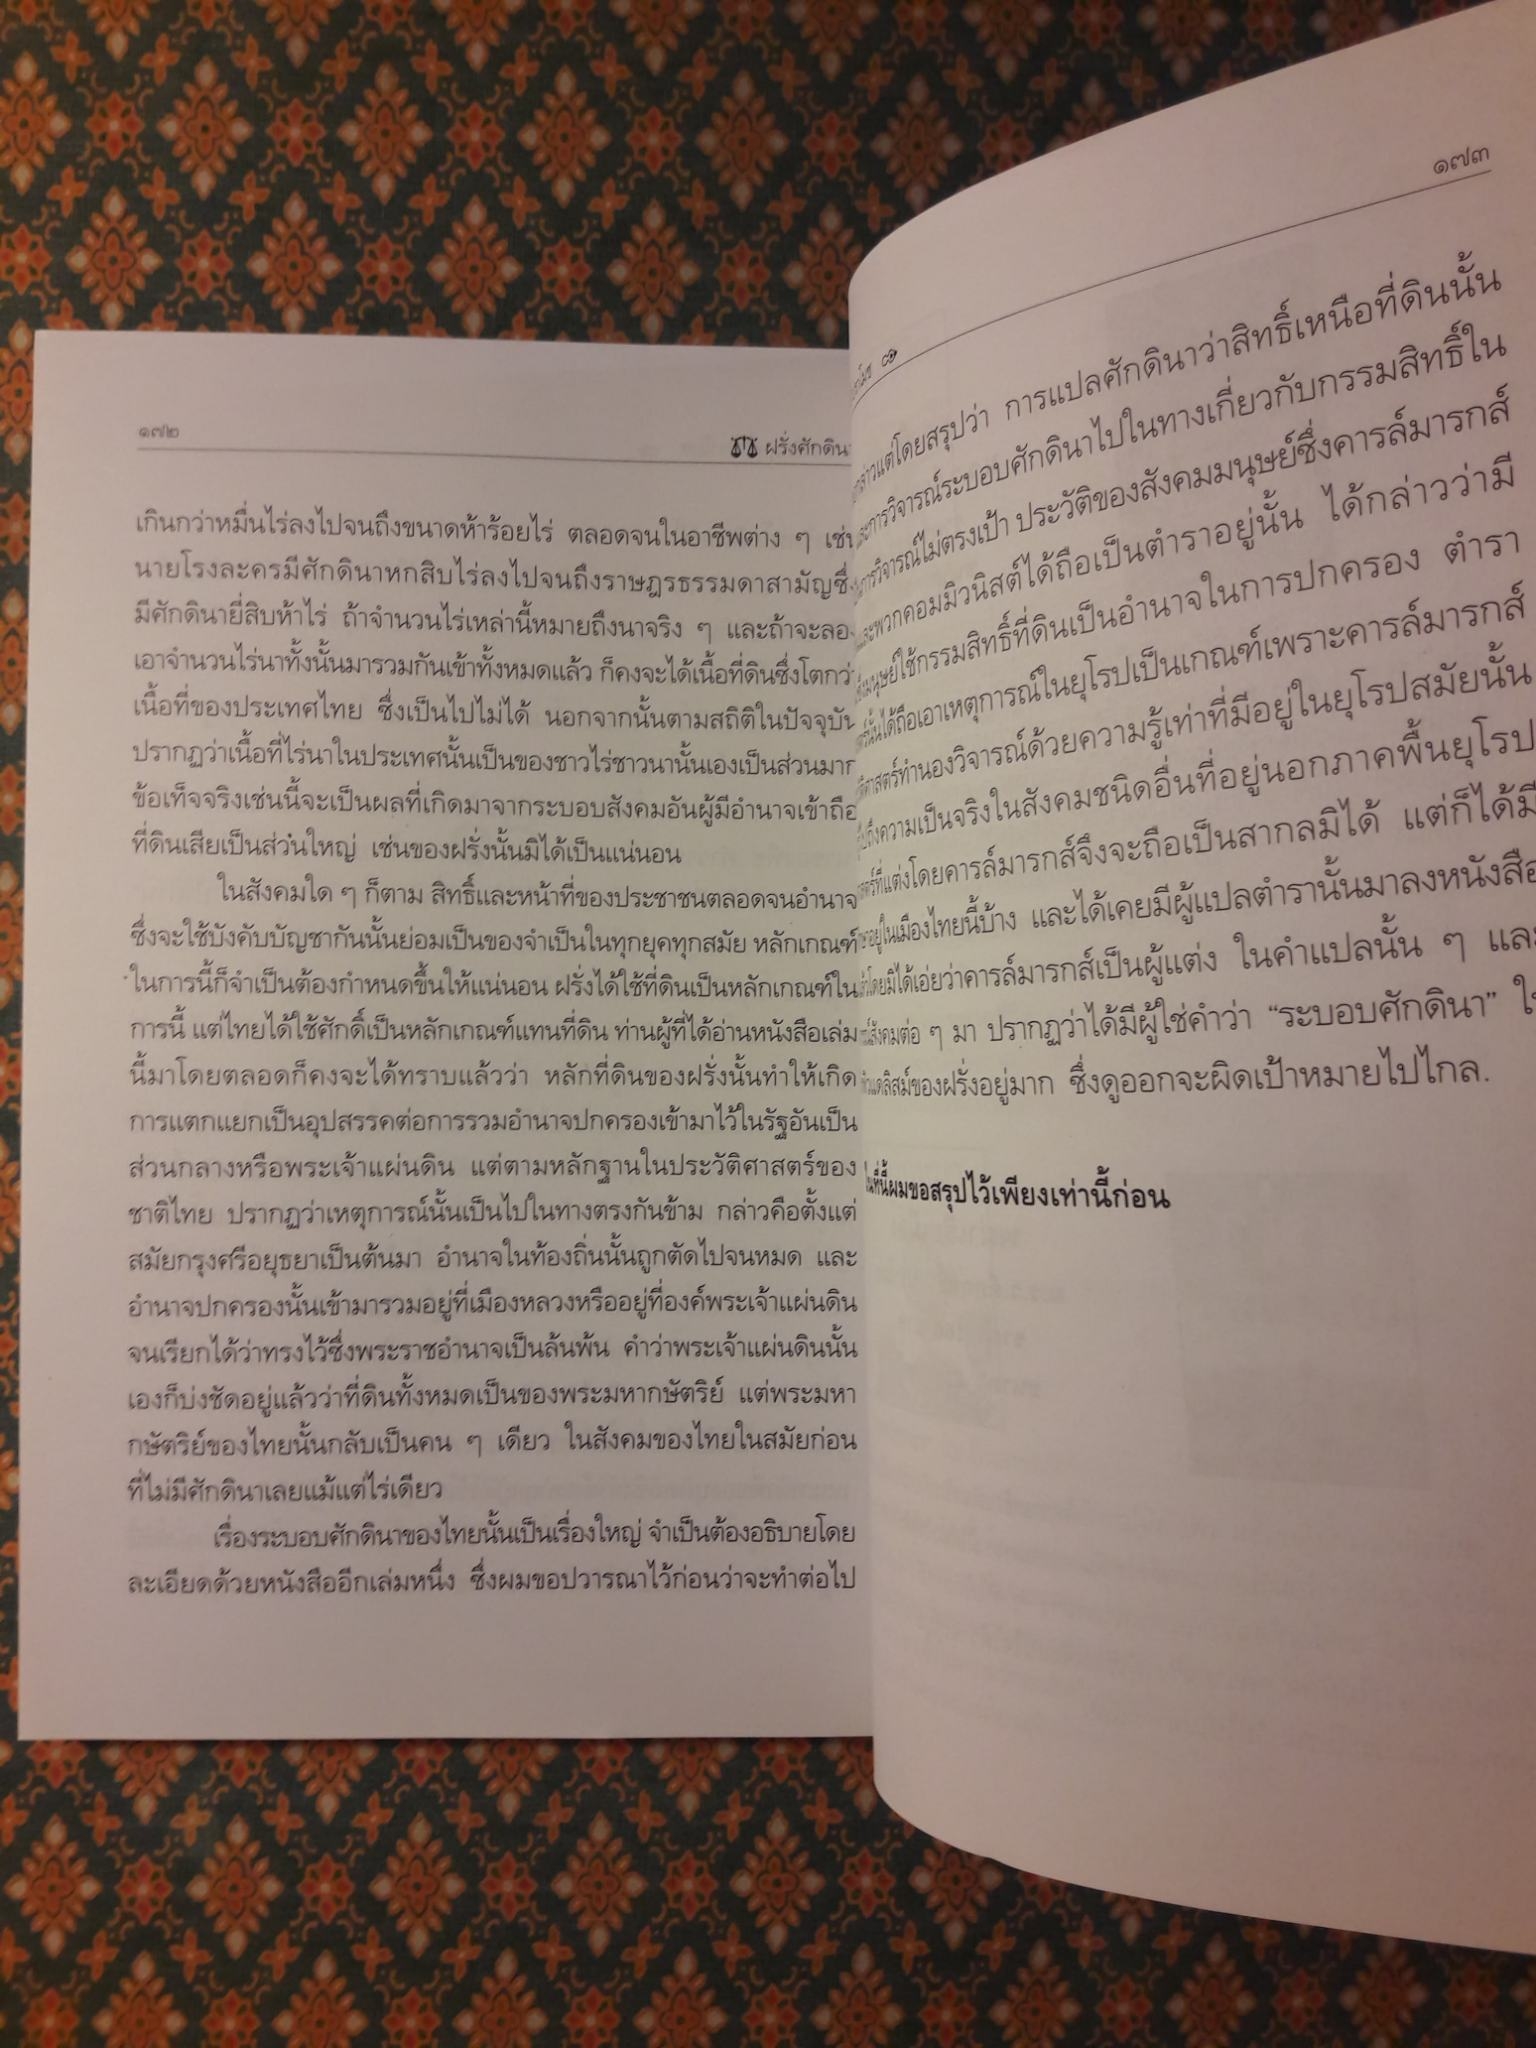 ๑๗๒
ฝรั่งศักดินา
เกินกว่าหมื่นไร่ลงไปจนถึงขนาดห้าร้อยไร่ ตลอดจนในอาชีพต่าง ๆ เช่น
นายโรงละครมีศักดินาหกสิบไร่ลงไปจนถึงราษฎรธรรมดาสามัญซึ่ง
มีศักดินายี่สิบห้าไร่ ถ้าจำนวนไร่เหล่านี้หมายถึงนาจริง ๆ และถ้าจะลอง
เอาจำนวนไร่นาทั้งนั้นมารวมกันเข้าทั้งหมดแล้ว ก็คงจะได้เนื้อที่ดินซึ่งโตกว่า
เนื้อที่ของประเทศไทย ซึ่งเป็นไปไม่ได้ นอกจากนั้นตามสถิติในปัจจุบัน
ปรากฏว่าเนื้อที่ไร่นาในประเทศนั้นเป็นของชาวไร่ชาวนานั้นเองเป็นส่วนมาก
ข้อเท็จจริงเช่นนี้จะเป็นผลที่เกิดมาจากระบอบสังคมอันผู้มีอำนาจเข้าถือ
ที่ดินเสียเป็นส่วนใหญ่ เช่นของฝรั่งนั้นมิได้เป็นแน่นอน
ในสังคมใด ๆ ก็ตาม สิทธิ์และหน้าที่ของประชาชนตลอดจนอำนาจ
ซึ่งจะใช้บังคับบัญชากันนั้นย่อมเป็นของจำเป็นในทุกยุคทุกสมัย หลักเกณฑ์
ในการนี้ก็จำเป็นต้องกำหนดขึ้นให้แน่นอน ฝรั่งได้ใช้ที่ดินเป็นหลักเกณฑ์ใน
การนี้ แต่ไทยได้ใช้ศักดิ์เป็นหลักเกณฑ์แทนที่ดิน ท่านผู้ที่ได้อ่านหนังสือเล่ม
นี้มาโดยตลอดก็คงจะได้ทราบแล้วว่า หลักที่ดินของฝรั่งนั้นทำให้เกิด
การแตกแยกเป็นอุปสรรคต่อการรวมอำนาจปกครองเข้ามาไว้ในรัฐอันเป็น
ส่วนกลางหรือพระเจ้าแผ่นดิน แต่ตามหลักฐานในประวัติศาสตร์ของ
ชาติไทย ปรากฏว่าเหตุการณ์นั้นเป็นไปในทางตรงกันข้าม กล่าวคือตั้งแต่
สมัยกรุงศรีอยุธยาเป็นต้นมา อำนาจในท้องถิ่นนั้นถูกตัดไปจนหมด และ
อำนาจปกครองนั้นเข้ามารวมอยู่ที่เมืองหลวงหรืออยู่ที่องค์พระเจ้าแผ่นดิน
จนเรียกได้ว่าทรงไว้ซึ่งพระราชอำนาจเป็นล้นพ้น คำว่าพระเจ้าแผ่นดินนั้น
เองก็บ่งชัดอยู่แล้วว่าที่ดินทั้งหมดเป็นของพระมหากษัตริย์ แต่พระมหา
กษัตริย์ของไทยนั้นกลับเป็นคน ๆ เดียว ในสังคมของไทยในสมัยก่อน
ที่ไม่มีศักดินาเลยแม้แต่ไร่เดียว
เรื่องระบอบศักดินาของไทยนั้นเป็นเรื่องใหญ่ จำเป็นต้องอธิบายโดย
ละเอียดด้วยหนังสืออีกเล่มหนึ่ง ซึ่งผมขอปวารณาไว้ก่อนว่าจะทำต่อไป
๑๗๓
กล่าวแต่โดยสรุปว่า การแปลศักดินาว่าสิทธิ์เหนือที่ดินนั้น
และการวิจารณ์ระบอบศักดินาไปในทางเกี่ยวกับกรรมสิทธิ์ใน
การวิจารณ์ไม่ตรงเป้า ประวัติของสังคมมนุษย์ซึ่งคาร์ลมารกส์
และพวกคอมมิวนิสต์ได้ถือเป็นตำราอยู่นั้น ได้กล่าวว่ามี
มนุษย์ใช้กรรมสิทธิ์ที่ดินเป็นอำนาจในการปกครอง ตำรา
นั้นได้ถือเอาเหตุการณ์ในยุโรปเป็นเกณฑ์เพราะคาร์ลมารกส์
ศาสตร์ทำนองวิจารณ์ด้วยความรู้เท่าที่มีอยู่ในยุโรปสมัยนั้น
ถึงความเป็นจริงในสังคมชนิดอื่นที่อยู่นอกภาคพื้นยุโรป
ที่แต่งโดยคาร์ลมารกส์จึงจะถือเป็นสากลมิได้ แต่ก็ได้มี
อยู่ในเมืองไทยนี้บ้าง และได้เคยมีผู้แปลตำรานั้นมาลงหนังสือ
โดยมิได้เอ่ยว่าคาร์ลมารกส์เป็นผู้แต่ง ในคำแปลนั้น ๆ และ
สังคมต่อ ๆ มา ปรากฏว่าได้มีผู้ใช่คำว่า “ระบอบศักดินา” ใน
ของฝรั่งอยู่มาก ซึ่งดูออกจะผิดเป้าหมายไปไกล.
ในที่นี้ผมขอสรุปไว้เพียงเท่านี้ก่อน